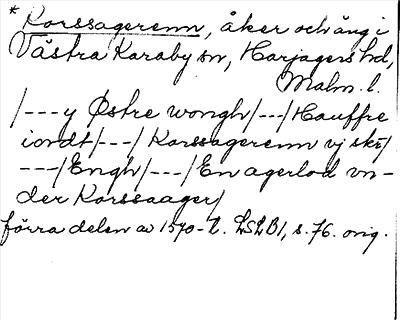 * Korssagerenn, åker och äng i
Västra Karaby sn, Harjagers hd,
Malm. l.
/---y Østre wongh/---/Hauffre
iordt/---/Korssagerenn vj skr/
---/Engh/---/En agerlod vn-
der Korssaager/
förra delen av 1570-t. LSLB1, s. 76. orig.